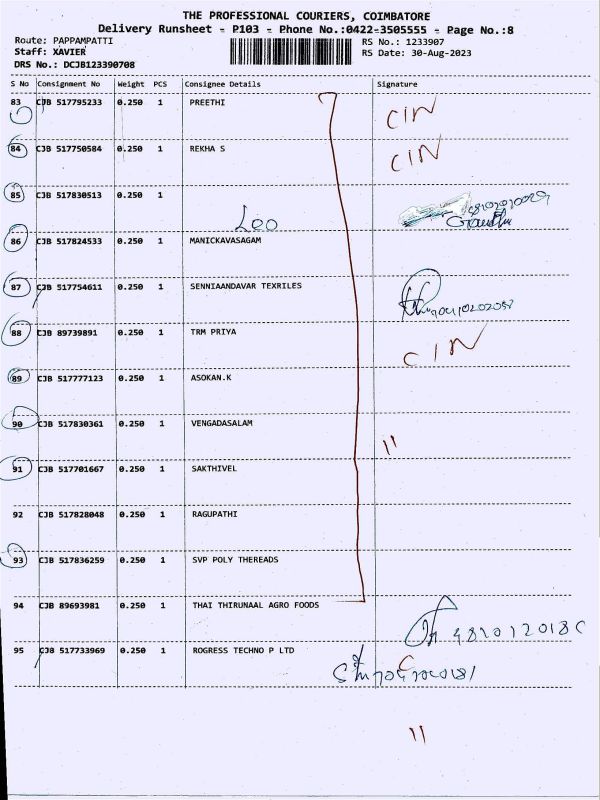 THE PROFESSIONAL COURIERS, COIMBATORE
Delivery Runsheet - P103 - Phone No.:0422-3505555 - Page No.:8
Route: PAPPAMPATTI RS No.: 1233907
Staff: XAVIER RS Date: 30-Aug-2023
DRS No.: DCJB123390708
S No Consignment No Weight PCS Consignee Details Signature
83 CJB 517795233 0.250 1 PREETHI CIN
84 CJB 517750584 0.250 1 REKHA S CIN
85 CJB 517830513 0.250 1
Leo
86 CJB 517824533 0.250 1 MANICKAVASAGAM
87 CJB 517754611 0.250 1 SENNIAANDAVAR TEXRILES
88 CJB 89739891 0.250 1 TRM PRIYA CIN
89 CJB 517777123 0.250 1 ASOKAN.K
90 CJB 517830361 0.250 1 VENGADASALAM
"
91 CJB 517701667 0.250 1 SAKTHIVEL
92 CJB 517828048 0.250 1 RAGUPATHI
93 CJB 517836259 0.250 1 SVP POLY THEREADS
94 CJB 89693981 0.250 1 THAI THIRUNAAL AGRO FOODS
95 CJB 517733969 0.250 1 ROGRESS TECHNO P LTD
"